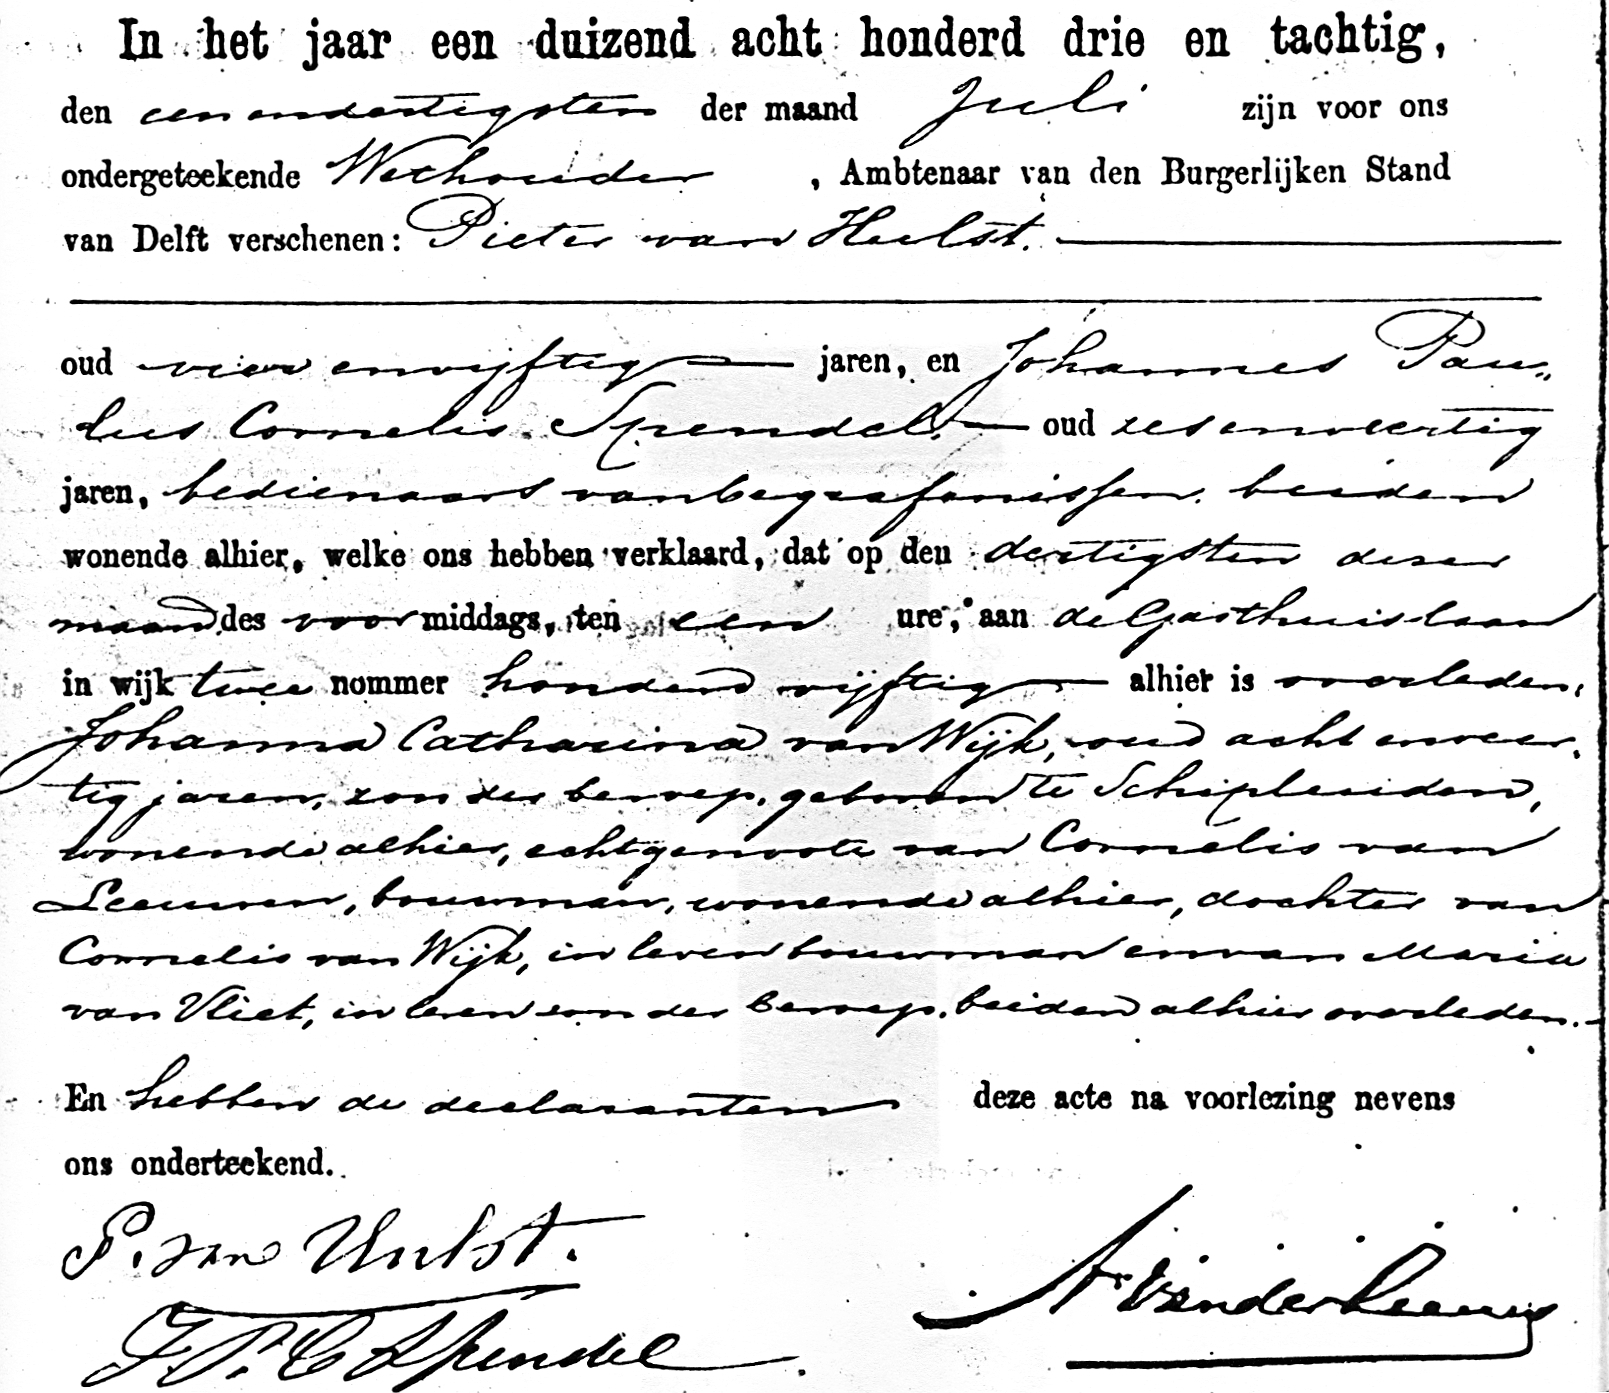 In het jaar een duizend acht honderd drie en tachtig,
den een en dertigsten der maand Juli zijn voor ons
ondergeteekende Wethouder, Ambtenaar van den Burgerlijken Stand
van Delft verschenen: Pieter van Hulst.
oud vier en vijftig jaren, en Johannes Pau„
lus Cornelis Spendel. oud zes en veertig
jaren, bedienaars van begrafenissen. beiden
wonende alhier, welke ons hebben verklaard, dat op den dertigsten dezer
maand des voormiddags, ten een ure, aan de Gasthuislaan
in wijk twee nommer honderd vijftig alhier is overleden:
Johanna Catharina van Wijk, oud acht en veer„
tig jaren, zonder beroep, geboren te Schipluiden,
wonende alhier, echtgenoote van Cornelis van
Leeuwen, bouwman, wonende alhier, dochter van
Cornelis van Wijk, in leven bouwman en van Maria
van Vliet, in leven zonder beroep. beiden alhier overleden.
En hebben de declaranten deze acte na voorlezing nevens
ons onderteekend.
P. van Hulst.
J. P. C Spendel
van der Leeuw